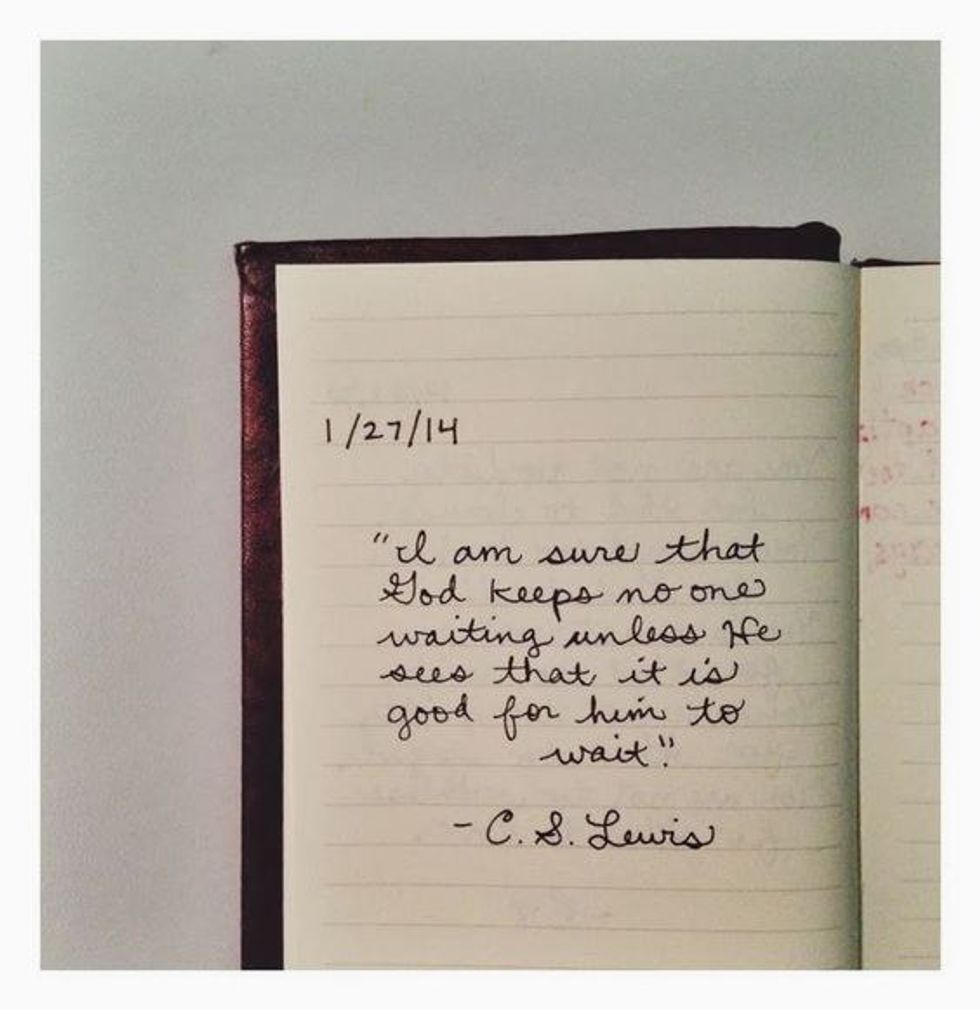 1/27/14
"I am sure that
God keeps no one
waiting unless He
sees that it is
good for him to
wait."
- C. S. Lewis